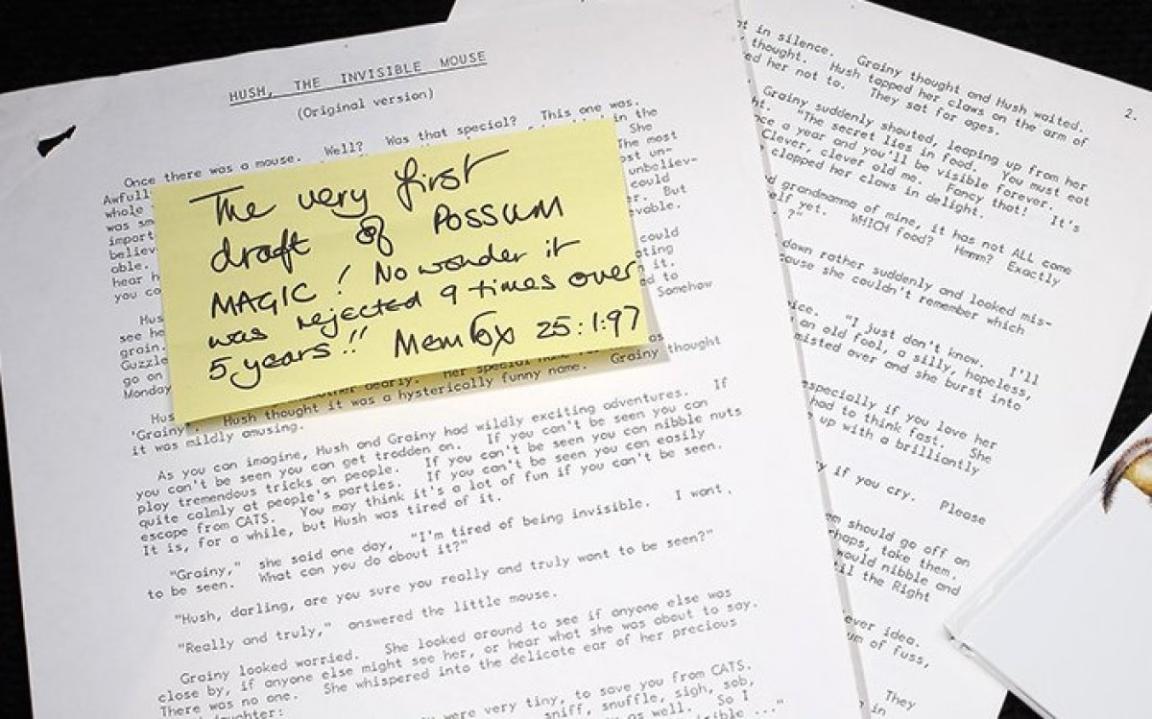 HUSH, THE INVISIBLE MOUSE
(Original version)
Once there was a mouse. Well? Was that special? This one was.
Awfull in the
whole She
was sm The most
import ost un-
believ unbeliev-
able. could
hear h r. But
you co vable.
The very first
draft of POSSUM
MAGIC! No wonder it
was rejected 9 times over
5 years!! Mem Fox 25:1:97
Hus could
see he oting
grain. it.
Guzzle d to
go on Somehow
Monday
dearly. Her special
Hus Grainy thought
'Grainy'. Hush thought it was a hysterically funny name.
it was mildly amusing.
As you can imagine, Hush and Grainy had wildly exciting adventures. If
you can't be seen you can get trodden on. If you can't be seen you can
play tremendous tricks on people. If you can't be seen you can nibble nuts
quite calmly at people's parties. If you can't be seen you can easily
escape from CATS. You may think it's a lot of fun if you can't be seen.
It is, for a while, but Hush was tired of it.
"Grainy," she said one day, "I'm tired of being invisible. I want
to be seen. What can you do about it?"
"Hush, darling, are you sure you really and truly want to be seen?"
"Really and truly," answered the little mouse.
Grainy looked worried. She looked around to see if anyone else was
close by, if anyone else might see her, or hear what she was about to say.
There was no one. She whispered into the delicate ear of her precious
daughter:
were very tiny, to save you from CATS.
sniff, snuffle, sigh, sob,
as well. So I
sible ..."
2.
t in silence. Grainy thought and Hush waited.
thought. Hush tapped her claws on the arm of
ed her not to. They sat for ages.
Grainy suddenly shouted, leaping up from her
ht. "The secret lies in food. You must eat
ce a year and you'll be visible forever. It's
Clever, clever old me. Fancy that!
clapped her claws in delight.
d grandmama of mine, it has not ALL come
elf yet. WHICH food? Hmmm? Exactly
?"
down rather suddenly and looked mis-
ause she couldn't remember which
ice. "I just don't know. I'll
an old fool, a silly, hopeless,
misted over and she burst into
especially if you love her
had to think fast. She
up with a brilliantly
y if you cry. Please
m should go off on
rhaps, take them.
would nibble and
til the Right
ever idea.
um of fuss,
They
in